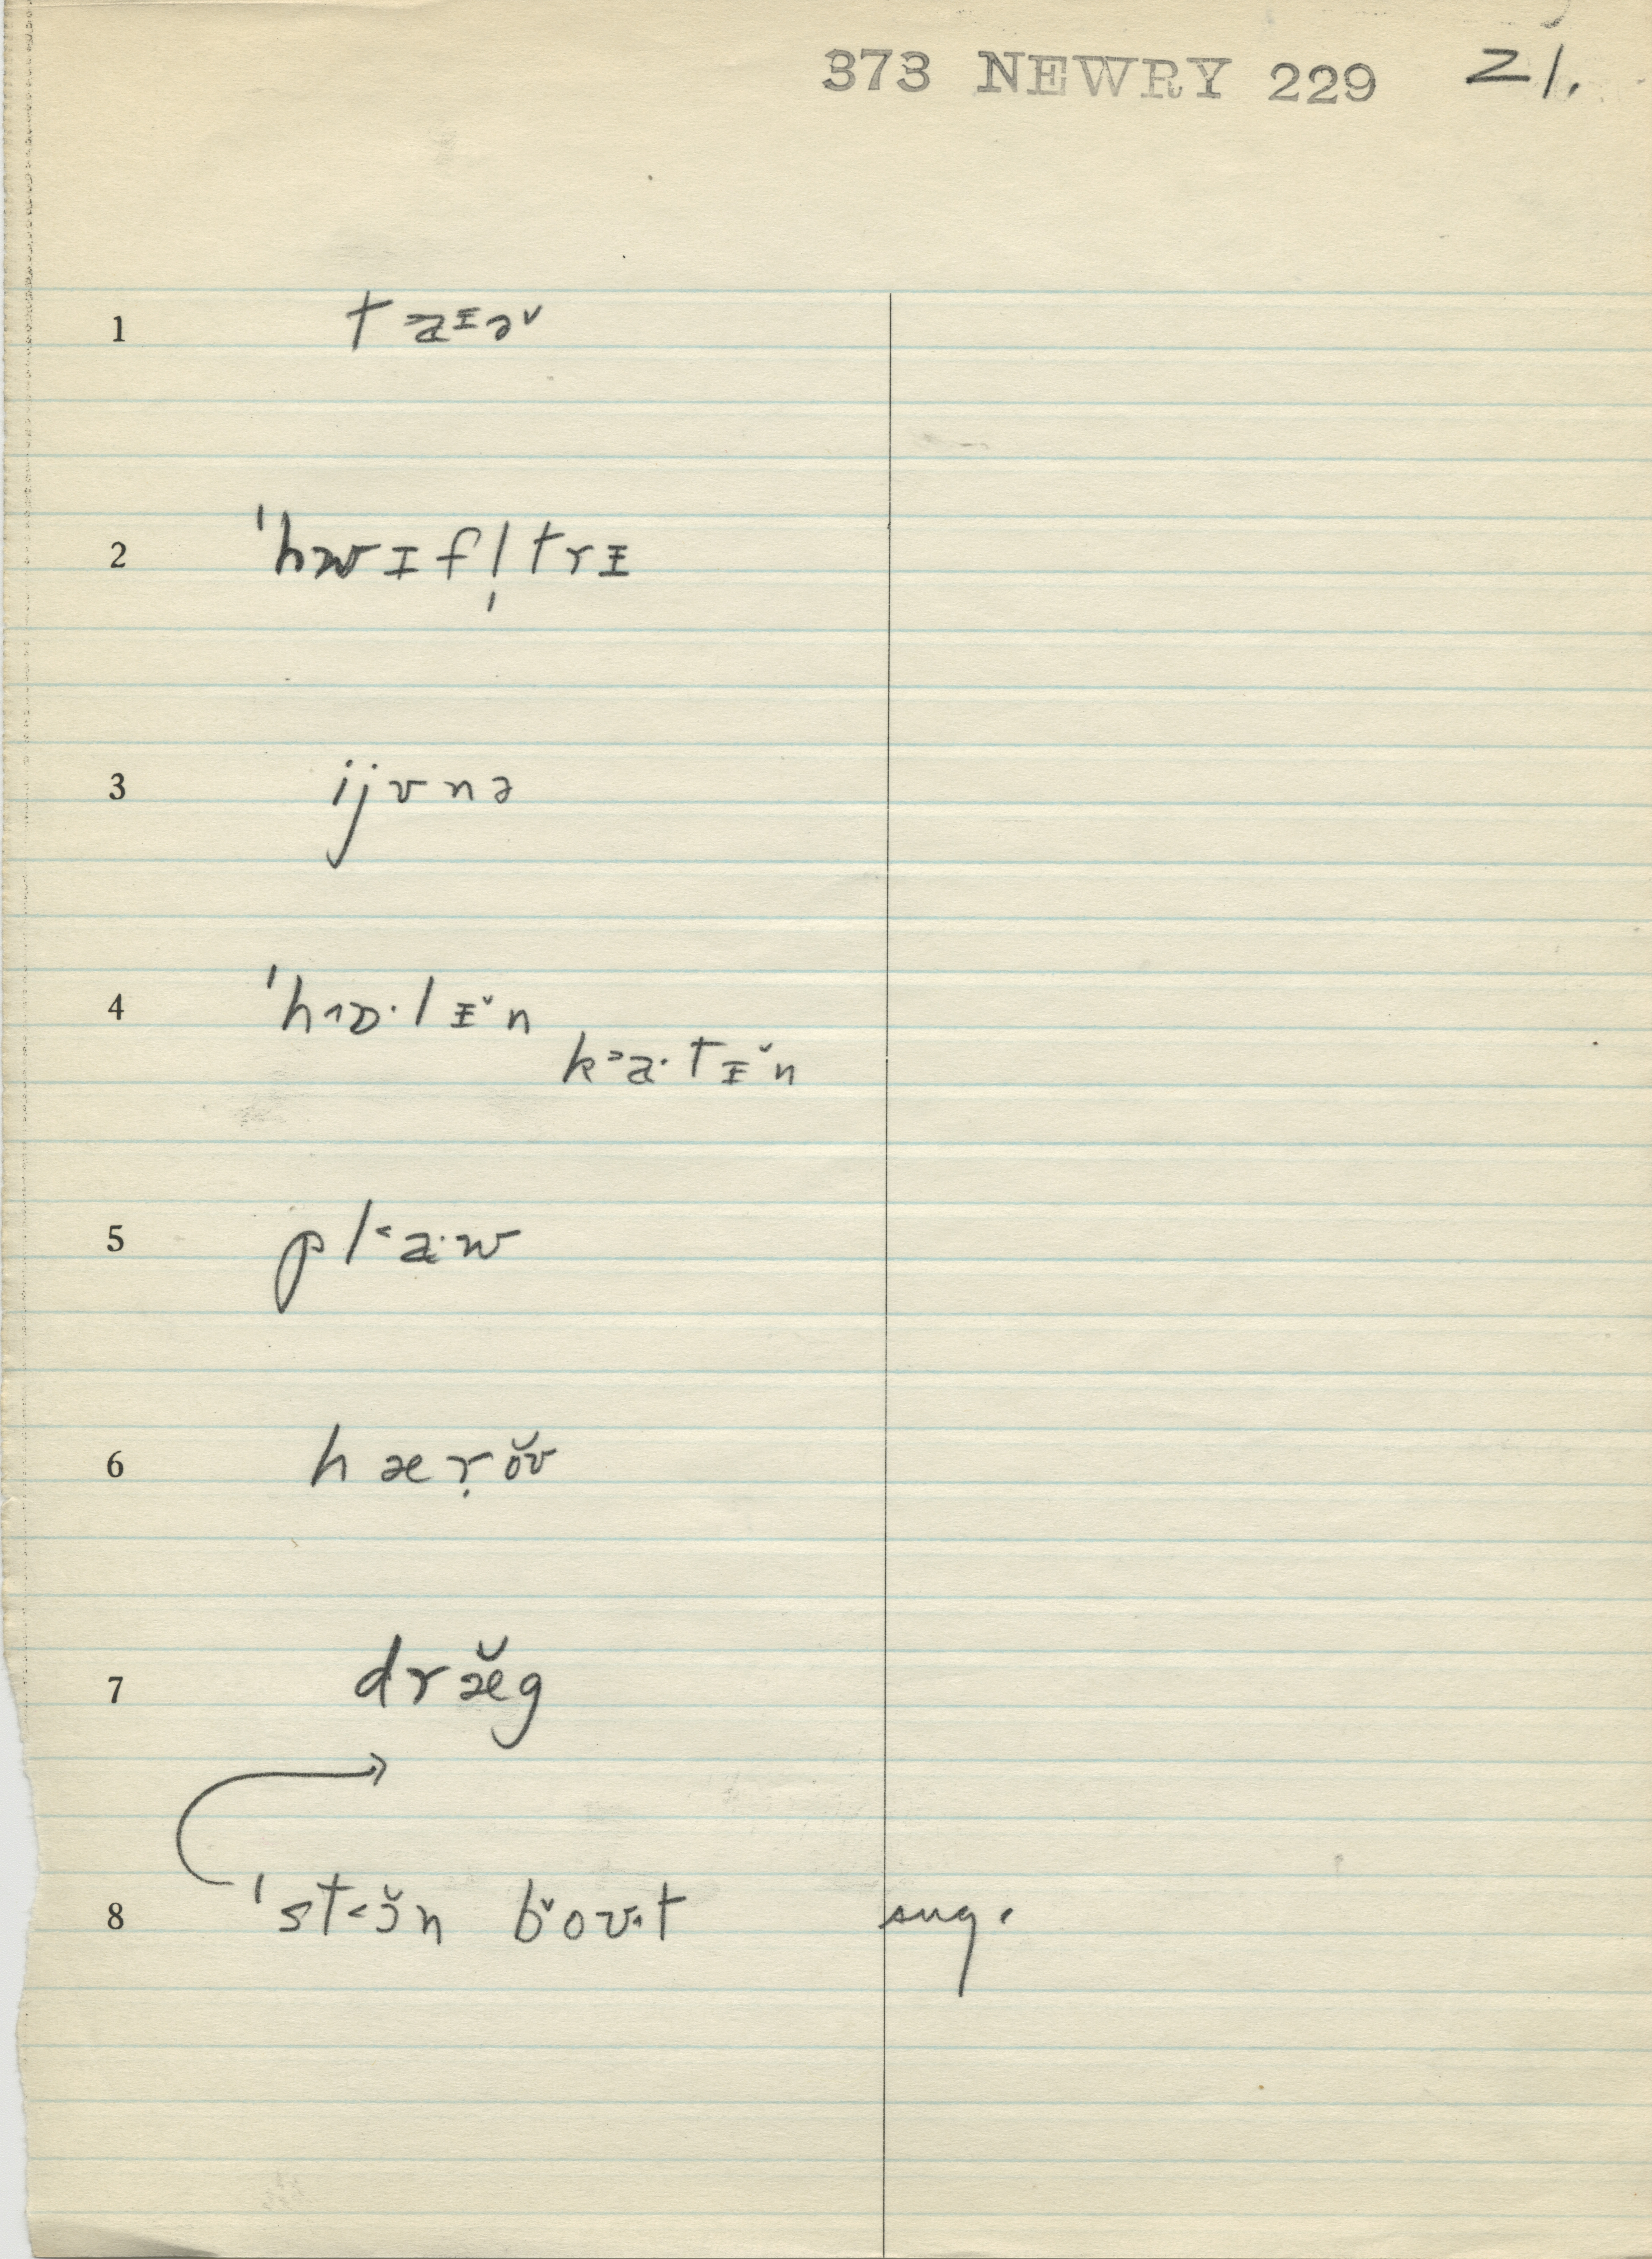 373 NEWRY 229 21.
1 t a ɪ ə˅
2 ˈhwɪfl̩trɪ
3 ijʊnə
4 ˈhɒ·lɪ˅n
ka·tɪ˅n
5 pl˂a·w
6 hæṛŏʊ
7 dræ̆g
8 ˈst˂ɔ̆n b˅oʊt sug.